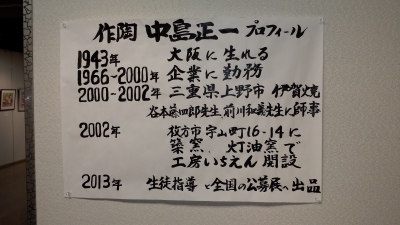 作陶 中島正一 プロフィール
1943年 大阪に生れる
1966~2000年 企業に勤務
2000~2002年 三重県上野市 伊賀焼
谷本藤四郎先生、前川和美先生に師事
2002年 枚方市宇山町16-14に
築窯、灯油窯で
工房いちえん開設
2013年 生徒指導と全国の公募展へ出品